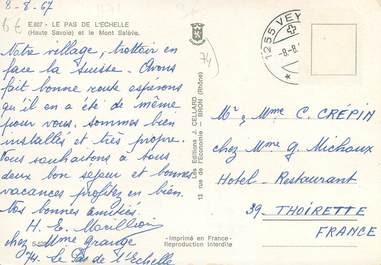 8-8-67
6€
E.807 - LE PAS DE L'ECHELLE
(Haute Savoie) et le Mont Salève.
74
1255 VEY
-8-8.
Notre village, trottoir en
face la Suisse. Avons
fait bonne route espérons
qu'il en a été de même
pour vous. sommes bien
installés et très propre.
Tous souhaitons à tous
deux bon séjour et bonnes
vacances profitez en bien.
Nos bonnes amitiés.
H. E.
chez Mme Grange
74. Le Pas de l'Echelle
Les Editions J. CELLARD
13 rue de l'Economie - BRON (Rhône)
- Imprimé en France -
Reproduction Interdite
Mr, Mme C. CRÉPIN
chez Mme G. Michaux
Hotel - Restaurant
39. THOIRETTE
FRANCE